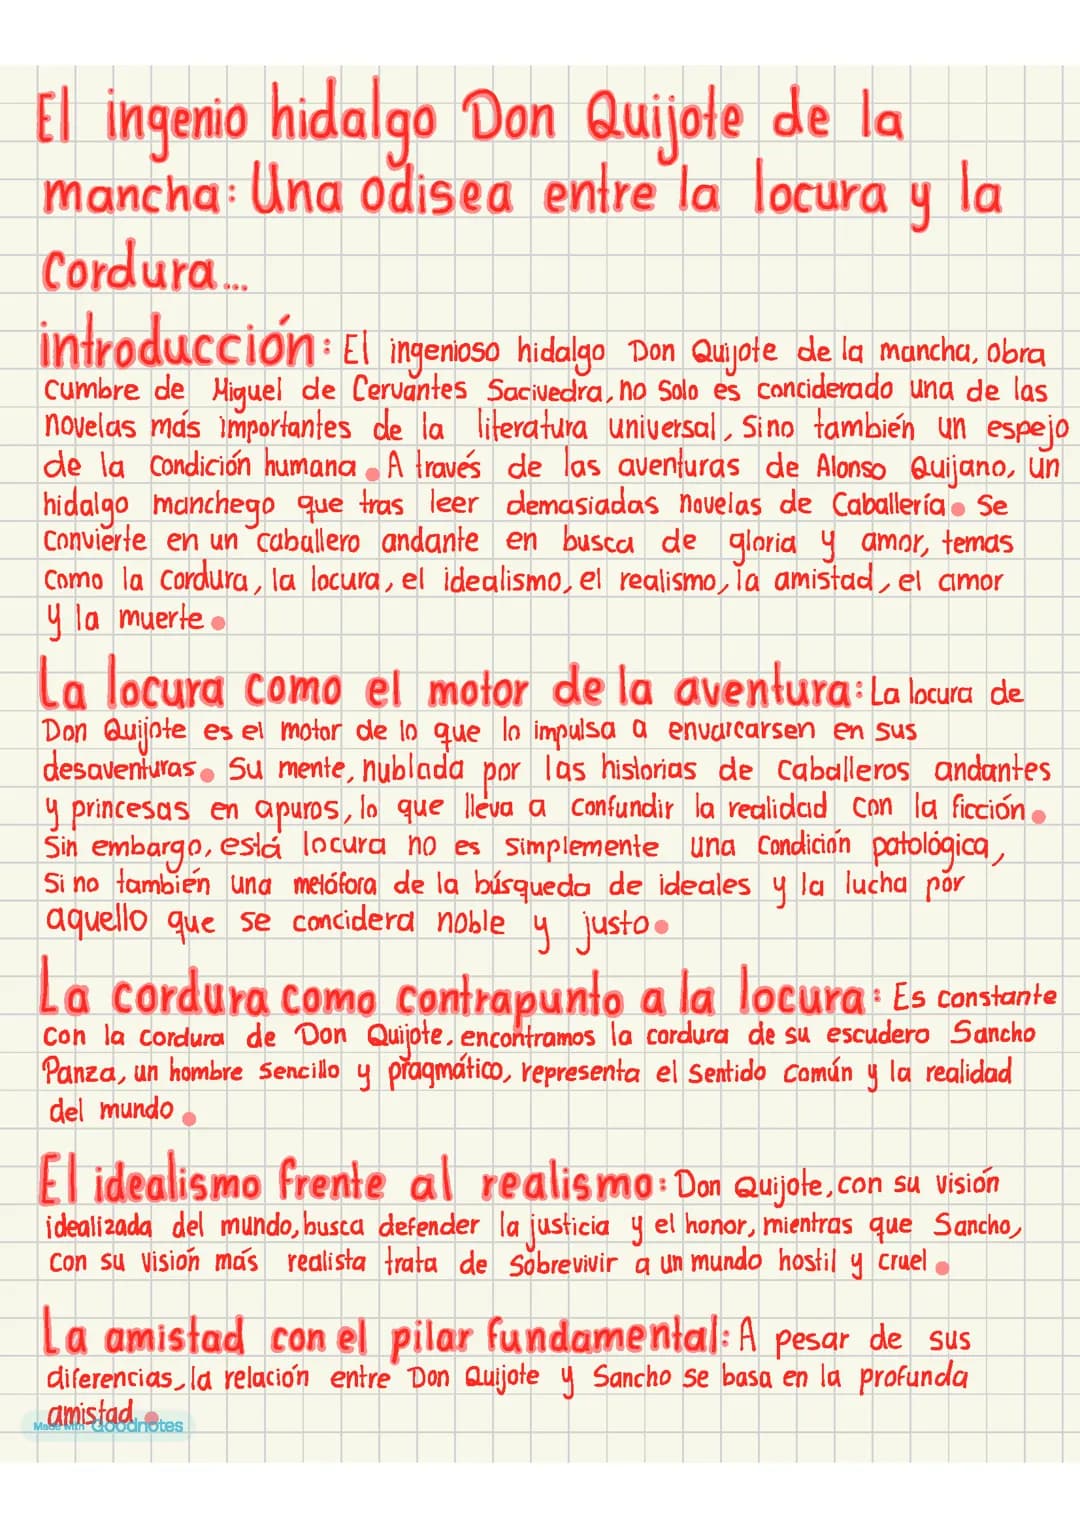 El ingenio hidalgo Don Quijote de la
mancha: Una odisea entre la locura y la
Cordura...
introducción: El ingenioso hidalgo Don Quijote de la mancha, obra
cumbre de Miguel de Cervantes Sacivedra, no solo es conciderado una de las
novelas más importantes de la literatura universal, Sino también un espejo
de la Condición humana. A través de las aventuras de Alonso Quijano, un
hidalgo manchego que tras leer demasiadas novelas de Caballería. Se
convierte en un caballero andante en busca de gloria y amor, temas
como la cordura, la locura, el idealismo, el realismo, la amistad, el amor
y la muerte.
La locura como el motor de la aventura: La locura de
Don Quijote es el motor de lo que lo impulsa a envarcarsen en sus
desaventuras. Su mente, nublada por las historias de Caballeros andantes
y princesas en apuros, lo que lleva a confundir la realidad con la ficción.
Sin embargo, está locura no es simplemente una Condición patológica,
Si no también una metófora de la búsqueda de ideales y la lucha por
aquello que se concidera noble y justo.
La cordura como contrapunto a la locura: Es constante
con la cordura de Don Quijote, encontramos la cordura de su escudero Sancho
Panza, un hombre sencillo y pragmático, representa el sentido común y la realidad
del mundo.
El idealismo frente al realismo: Don Quijote, con su visión
idealizada del mundo, busca defender la justicia y el honor, mientras que Sancho,
con su visión más realista trata de sobrevivir a un mundo hostil y cruel.
La amistad con el pilar fundamental: A pesar de sus
diferencias, la relación entre Don Quijote y Sancho se basa en la profunda
amistad.
Made with Goodnotes